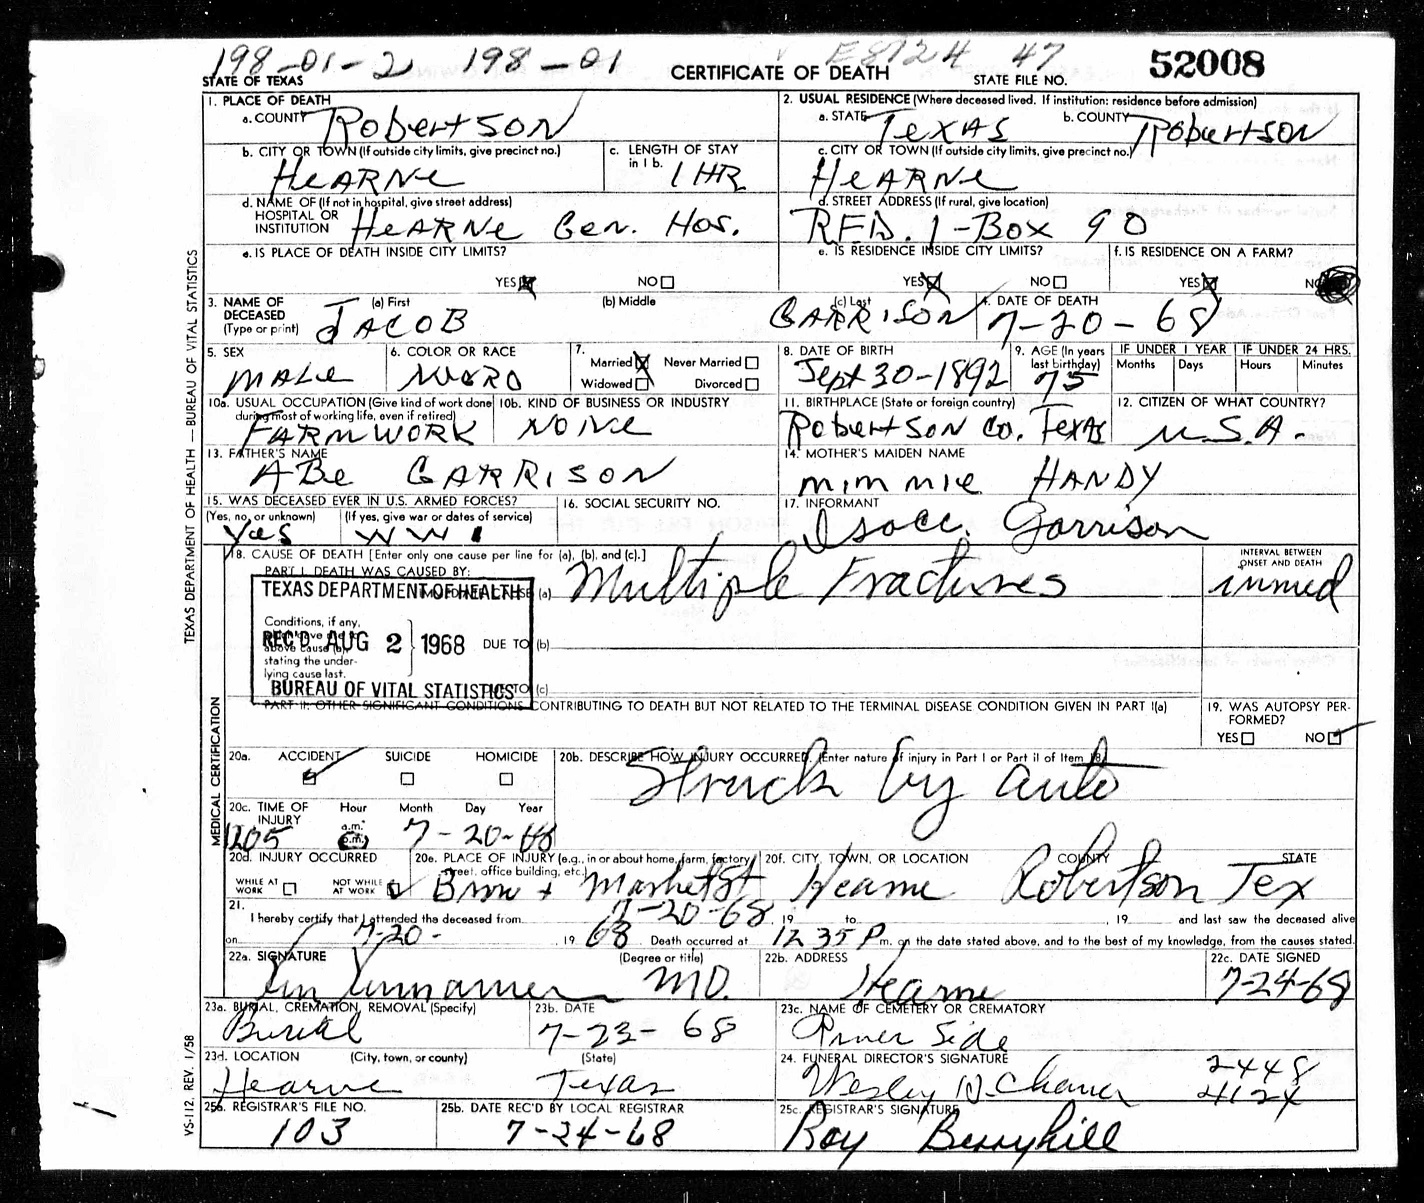 198-01-2 198-01 E8124 47
STATE OF TEXAS CERTIFICATE OF DEATH STATE FILE NO. 52008
1. PLACE OF DEATH
a. COUNTY Robertson
2. USUAL RESIDENCE (Where deceased lived. If institution: residence before admission)
a. STATE TEXAS b. COUNTY Robertson
b. CITY OR TOWN (If outside city limits, give precinct no.) HEARNE
c. LENGTH OF STAY in 1 b. 1 HR
c. CITY OR TOWN (If outside city limits, give precinct no.) HEARNE
d. NAME OF (If not in hospital, give street address) HOSPITAL OR INSTITUTION HEARNE Gen. Hos.
d. STREET ADDRESS (If rural, give location) R.F.D. 1-Box 90
e. IS PLACE OF DEATH INSIDE CITY LIMITS?
YES NO
e. IS RESIDENCE INSIDE CITY LIMITS?
YES NO
f. IS RESIDENCE ON A FARM?
YES NO
3. NAME OF DECEASED (Type or print) (a) First JACOB (b) Middle (c) Last GARRISON
4. DATE OF DEATH 7-20-68
5. SEX MALE
6. COLOR OR RACE NEGRO
7. Married Never Married
Widowed Divorced
8. DATE OF BIRTH Sept 30-1892
9. AGE (In years last birthday) 75
IF UNDER 1 YEAR Months Days
IF UNDER 24 HRS. Hours Minutes
10a. USUAL OCCUPATION (Give kind of work done during most of working life, even if retired) FARM WORK
10b. KIND OF BUSINESS OR INDUSTRY NONE
11. BIRTHPLACE (State or foreign country) Robertson Co. Texas
12. CITIZEN OF WHAT COUNTRY? U.S.A.
13. FATHER'S NAME ABe GARRISON
14. MOTHER'S MAIDEN NAME mimmie HANDY
15. WAS DECEASED EVER IN U.S. ARMED FORCES?
(Yes, no, or unknown) Yes (If yes, give war or dates of service) WW1
16. SOCIAL SECURITY NO.
17. INFORMANT Isacc. Garrison
18. CAUSE OF DEATH [Enter only one cause per line for (a), (b), and (c).]
PART I. DEATH WAS CAUSED BY:
IMMEDIATE CAUSE (a) Multiple Fractures
INTERVAL BETWEEN ONSET AND DEATH immed
TEXAS DEPARTMENT OF HEALTH
REC'D AUG 2 1968
BUREAU OF VITAL STATISTICS
Conditions, if any, which gave rise to above cause (a), stating the underlying cause last.
DUE TO (b)
DUE TO (c)
PART II. OTHER SIGNIFICANT CONDITIONS CONTRIBUTING TO DEATH BUT NOT RELATED TO THE TERMINAL DISEASE CONDITION GIVEN IN PART I(a)
19. WAS AUTOPSY PERFORMED?
YES NO
20a. ACCIDENT SUICIDE HOMICIDE
20b. DESCRIBE HOW INJURY OCCURRED. (Enter nature of injury in Part I or Part II of Item 18.)
Struck by auto
20c. TIME OF INJURY Hour Month Day Year
1205 a.m. p.m. 7-20-68
20d. INJURY OCCURRED
WHILE AT WORK NOT WHILE AT WORK
20e. PLACE OF INJURY (e.g., in or about home, farm, factory, street, office building, etc.) + Market St
20f. CITY, TOWN, OR LOCATION COUNTY STATE
Hearne Robertson Tex
21. I hereby certify that I attended the deceased from 7-20-68, 19 to , 19 and last saw the deceased alive
on 7-20- , 19 68 Death occurred at 12 35 P m. on the date stated above, and to the best of my knowledge, from the causes stated.
22a. SIGNATURE (Degree or title) MD.
22b. ADDRESS Hearne
22c. DATE SIGNED 7-24-68
23a. BURIAL, CREMATION, REMOVAL (Specify) Burial
23b. DATE 7-23-68
23c. NAME OF CEMETERY OR CREMATORY River Side
23d. LOCATION (City, town, or county) (State)
Hearne Texas
24. FUNERAL DIRECTOR'S SIGNATURE 2448
Wesley 4124
25a. REGISTRAR'S FILE NO. 103
25b. DATE REC'D BY LOCAL REGISTRAR 7-24-68
25c. REGISTRAR'S SIGNATURE Roy Berryhill
TEXAS DEPARTMENT OF HEALTH — BUREAU OF VITAL STATISTICS
MEDICAL CERTIFICATION
VS-112. REV. 1/58